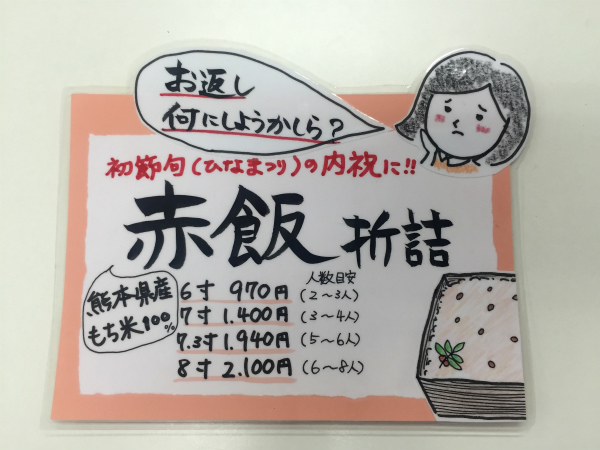 お返し
何にしようかしら?
初節句(ひなまつり)の内祝に!!
赤飯 折詰
熊本県産
もち米100%
人数目安
6寸 970円 (2〜3人)
7寸 1.400円 (3〜4人)
7.3寸 1.940円 (5〜6人)
8寸 2.100円 (6〜8人)